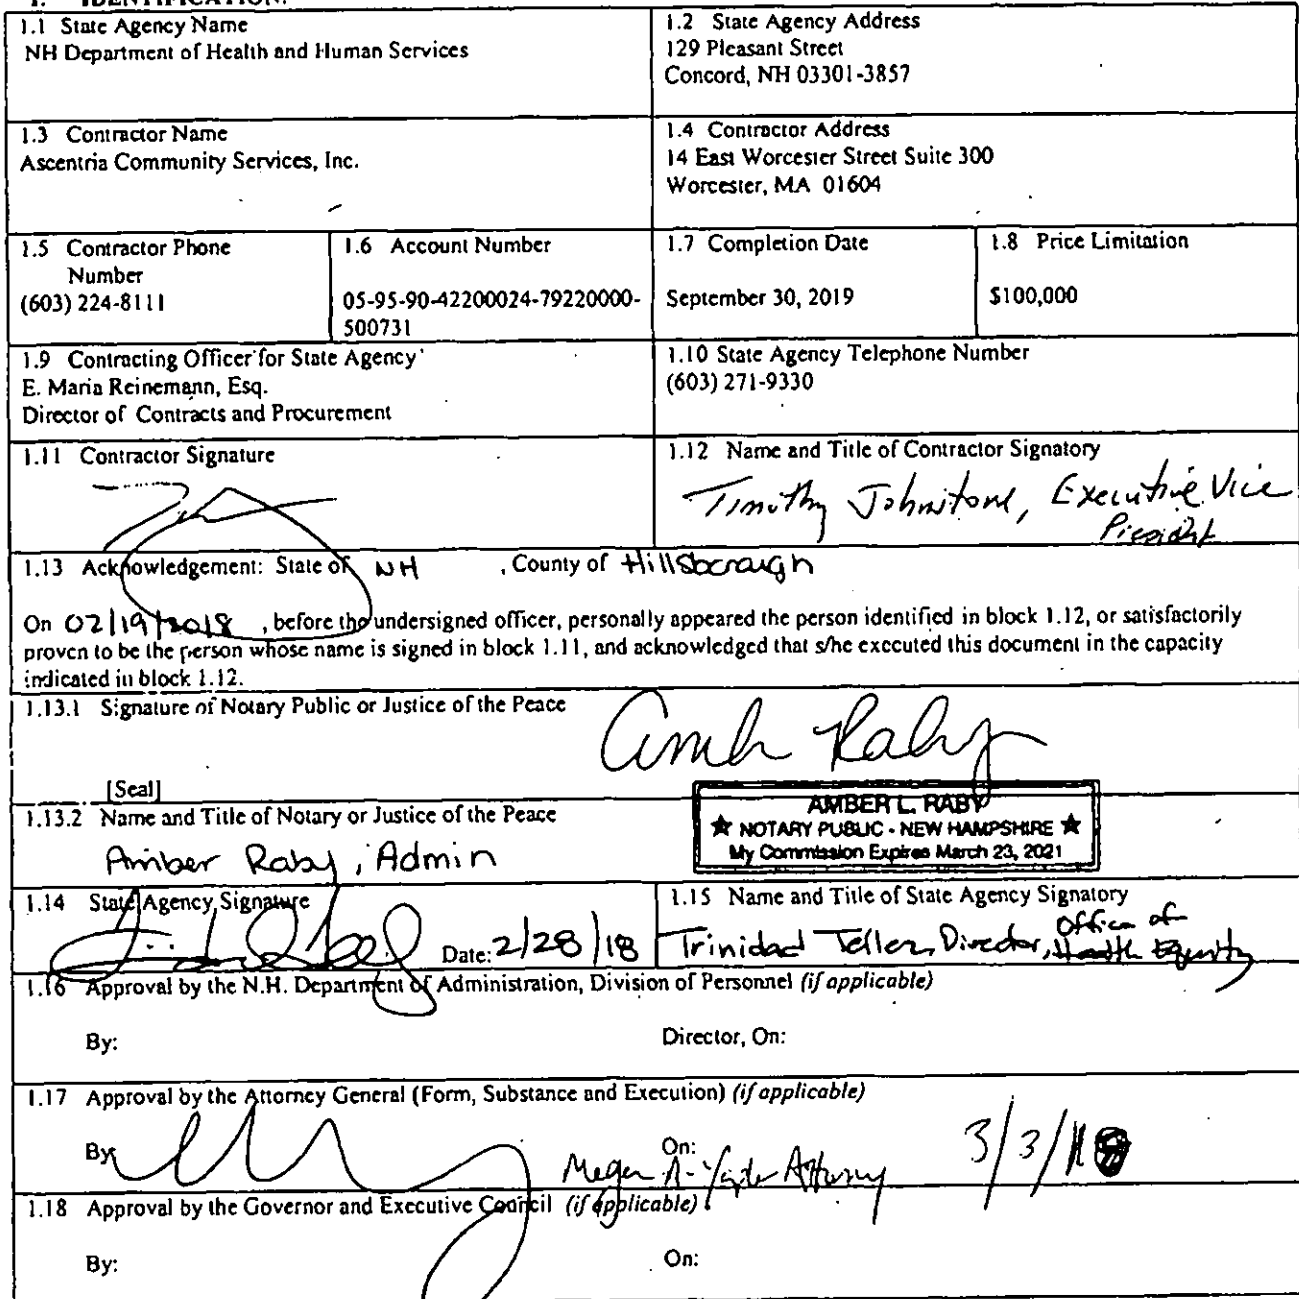 1. IDENTIFICATION.
1.1 State Agency Name
NH Department of Health and Human Services
1.2 State Agency Address
129 Pleasant Street
Concord, NH 03301-3857
1.3 Contractor Name
Ascentria Community Services, Inc.
1.4 Contractor Address
14 East Worcester Street Suite 300
Worcester, MA 01604
1.5 Contractor Phone
Number
(603) 224-8111
1.6 Account Number
05-95-90-42200024-79220000-
500731
1.7 Completion Date
September 30, 2019
1.8 Price Limitation
$100,000
1.9 Contracting Officer for State Agency
E. Maria Reinemann, Esq.
Director of Contracts and Procurement
1.10 State Agency Telephone Number
(603) 271-9330
1.11 Contractor Signature
1.12 Name and Title of Contractor Signatory
Timothy Johnstone, Executive Vice
President
1.13 Acknowledgement: State of NH , County of Hillsborough
On 02/19/2018 , before the undersigned officer, personally appeared the person identified in block 1.12, or satisfactorily
proven to be the person whose name is signed in block 1.11, and acknowledged that s/he executed this document in the capacity
indicated in block 1.12.
1.13.1 Signature of Notary Public or Justice of the Peace
Raby
[Seal]
AMBER L. RABY
★ NOTARY PUBLIC - NEW HAMPSHIRE ★
My Commission Expires March 23, 2021
1.13.2 Name and Title of Notary or Justice of the Peace
Amber Raby, Admin
1.14 State Agency Signature
Date: 2/28/18
1.15 Name and Title of State Agency Signatory
Trinidad Tellez, Director, Office of
Health Equity
1.16 Approval by the N.H. Department of Administration, Division of Personnel (if applicable)
By: Director, On:
1.17 Approval by the Attorney General (Form, Substance and Execution) (if applicable)
By: On: 3/3/18
Megan A. Attorney
1.18 Approval by the Governor and Executive Council (if applicable)
By: On: